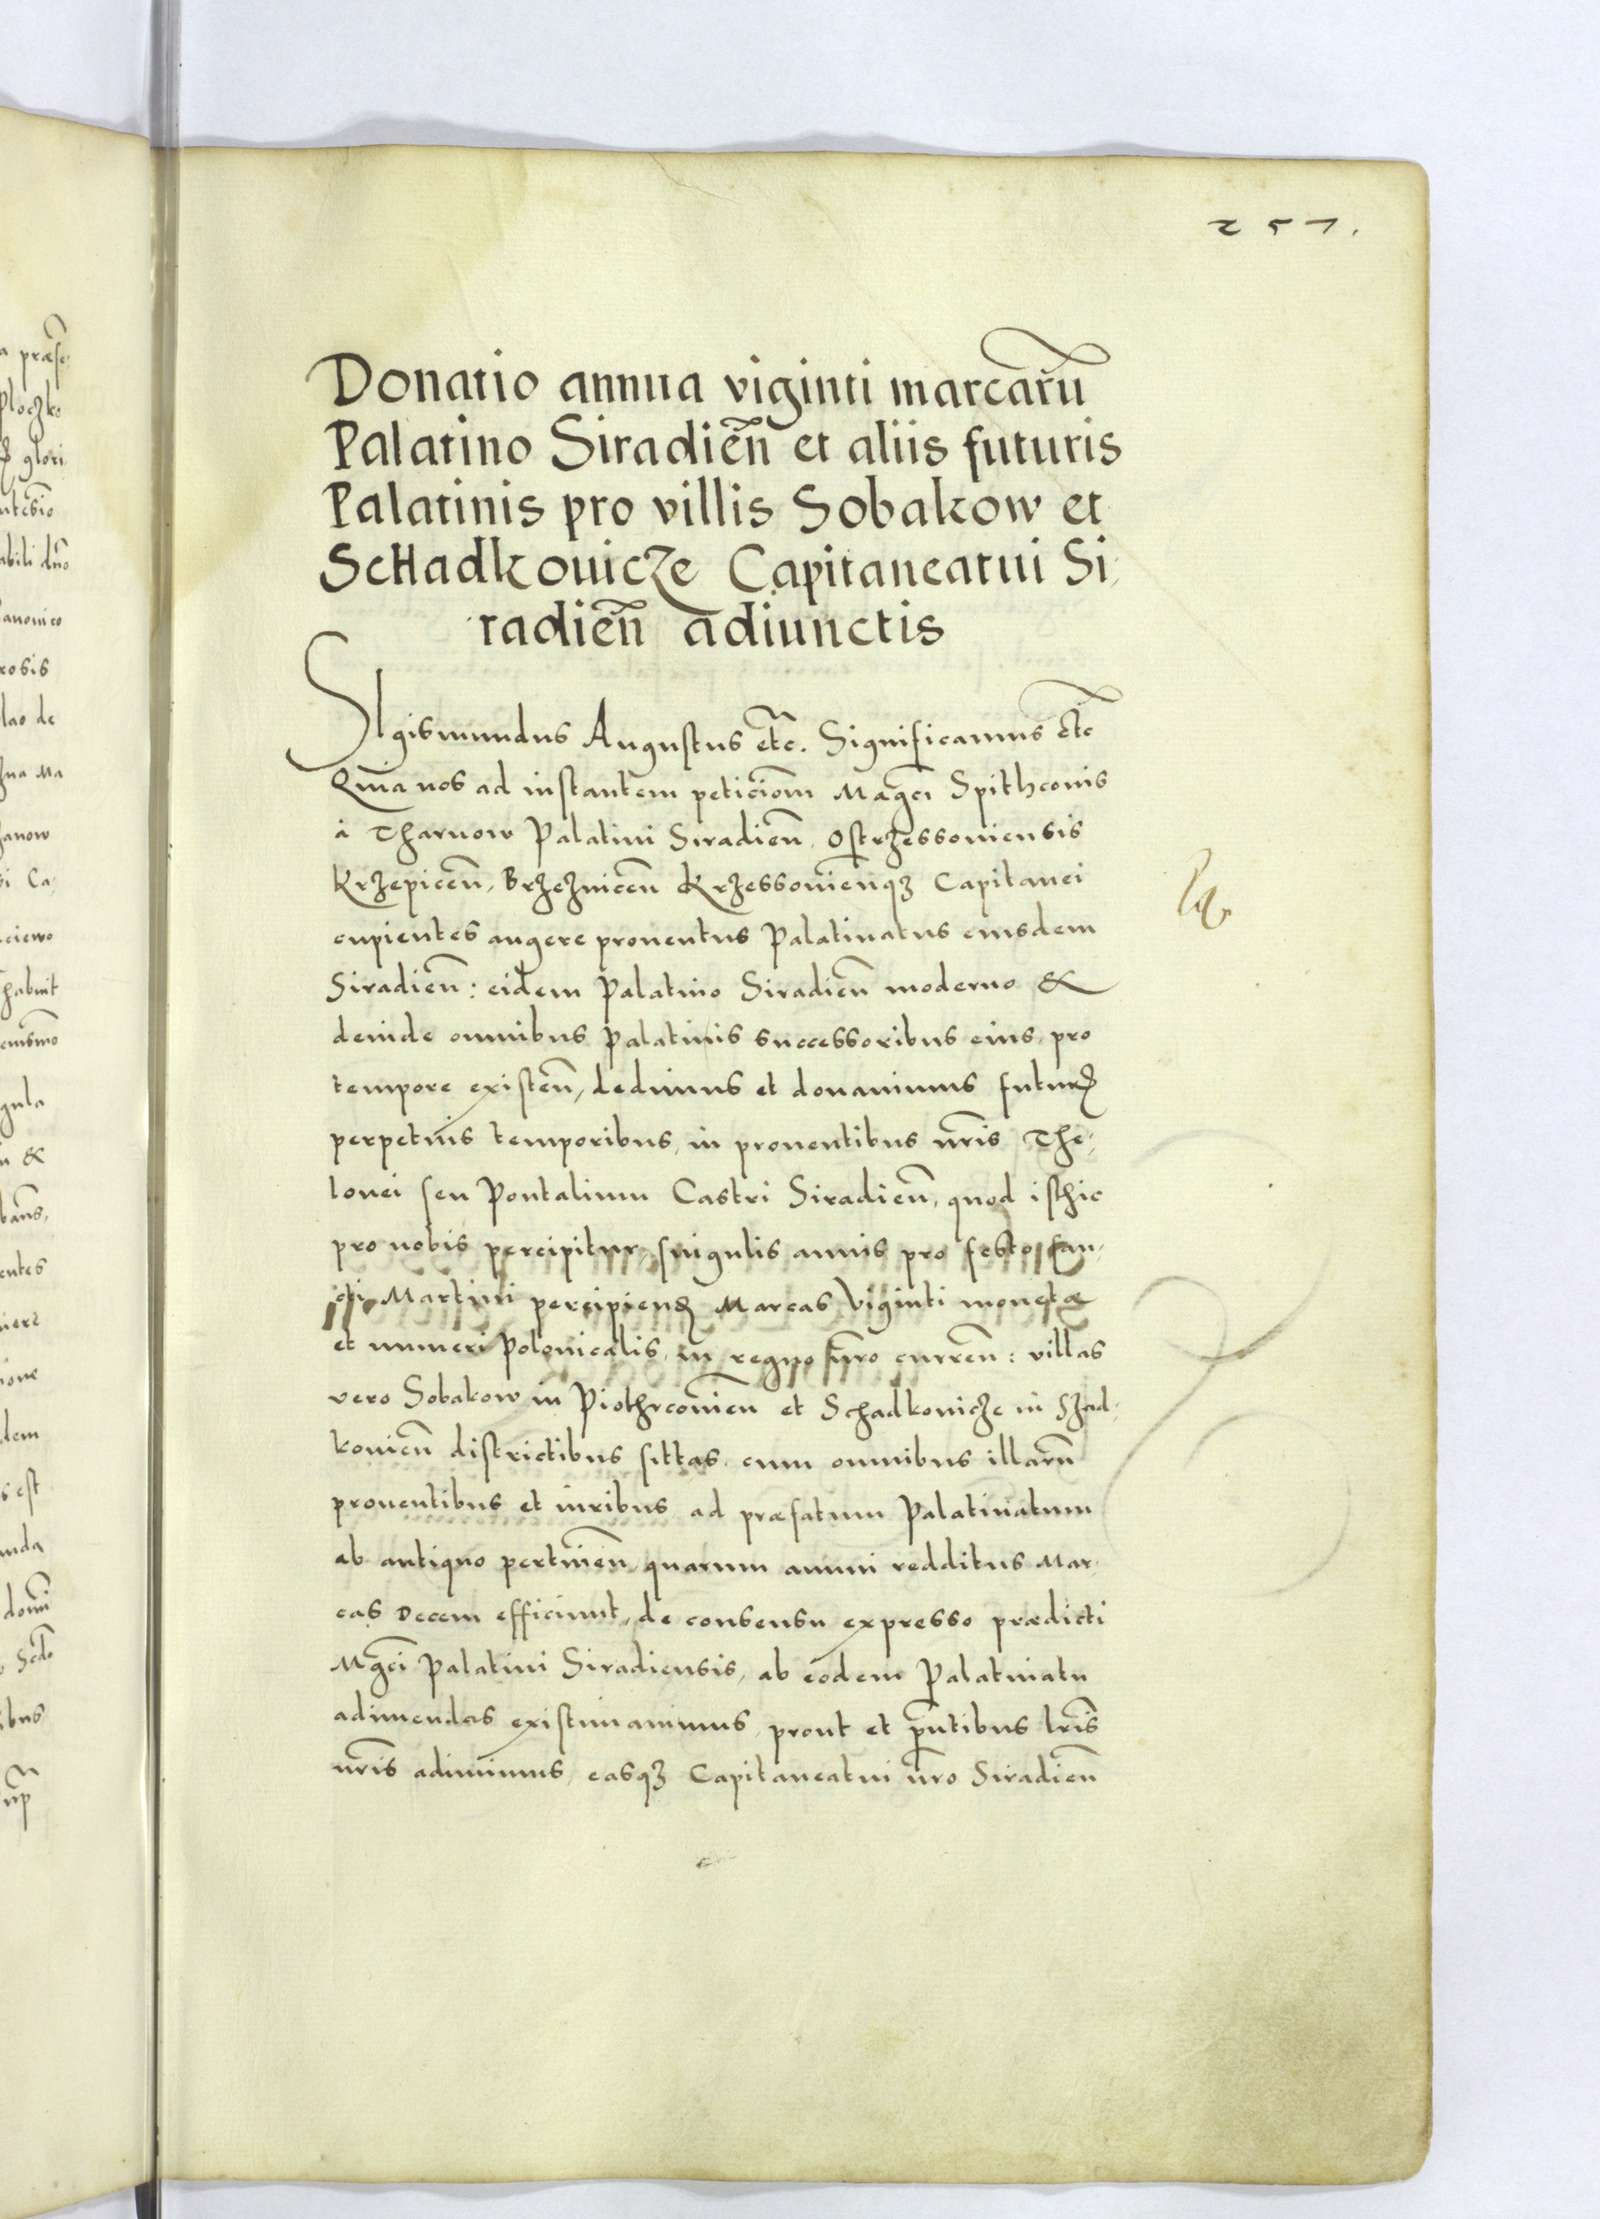 257.
Donatio annua viginti marcarũ
Palatino Siradień et aliis futuris
Palatinis pro villis Sobakow et
Schadkouicze Capitaneatui Si,
radień adiunctis
SIgismundus Augustus etc̃. Significamus etc̃
Quia nos ad instantem peticiom̃ Magci Spithconis
à Tharnow Palatini Siradień, Ostrzessouiensis
Krzepiceń, Brzezniceń Krzessouieńqꝫ Capitanei
cupientes augere prouentus Palatinatus eiusdem
Siradień: eidem Palatino Siradień moderno &
deinde omnibus Palatinis successoribus eius, pro
tempore existeń, dedimus et donauimus futurꝭ
perpetuis temporibus, in prouentibus nr̃is The,
lonei seu Pontalium Castri Siradień, quod isthic
pro nobis percipitur, singulis annis pro festo san,
cti Martini percipienꝭ Marcas Viginti monetæ
et numeri Polonicalis, in regno nr̃o curreń: villas
vero Sobakow in Piothrcouień et Schadkouicze in Szad,
kouień districtibus sittas, cum omnibus illarũ
prouentibus et iuribus ad præfatum Palatinatum
ab antiquo pertineń, quarum annui redditus Mar,
cas Decem efficiunt, de consensu expresso prædicti
Mgci Palatini Siradiensis, ab eodem Palatinatu
adimendas existimauimus, prout et pn̄tibus lr̃is
nr̃is adimimus, easqꝫ Capitaneatui nr̃o Siradień